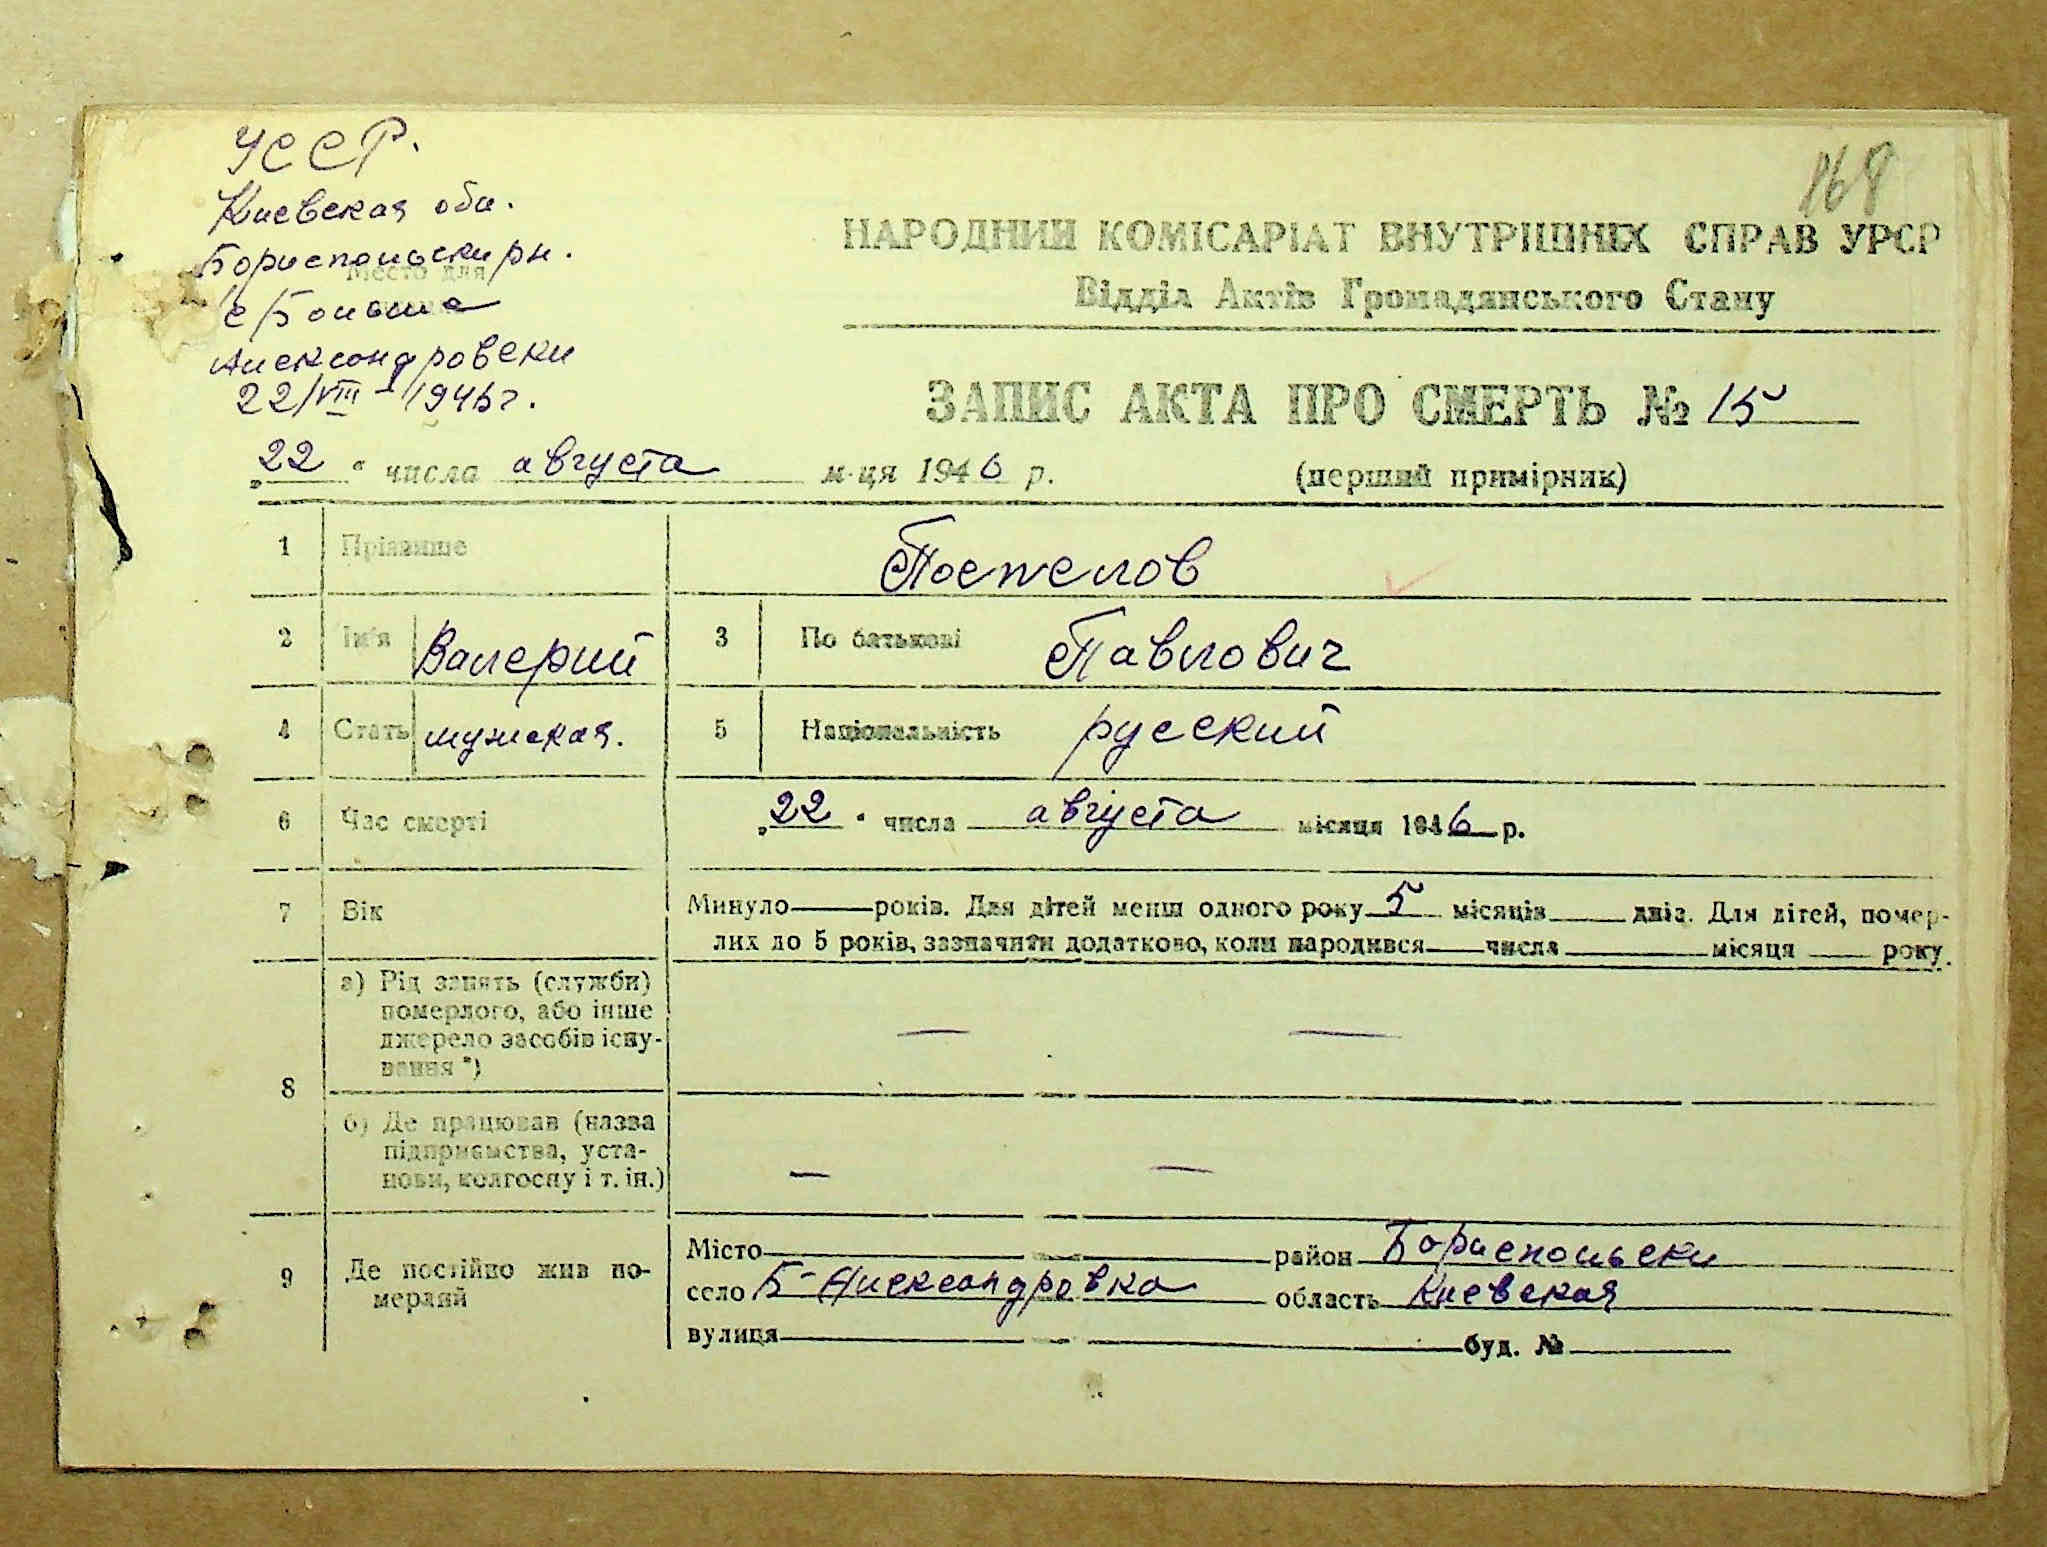 УССР.
168
Киевская обл.
Бориспольски рн.
Место для
с/Больша
Александровски
22/VIII - 1946 г.
НАРОДНИЙ КОМІСАРІАТ ВНУТРІШНІХ СПРАВ УРСР
Відділ Актів Громадянського Стану
ЗАПИС АКТА ПРО СМЕРТЬ № 15
„22“ числа августа м-ця 1946 р.
(перший примірник)
1 Прізвище Поспелов
2 Ім'я Валерий 3 По батькові Павлович
4 Стать мужская. 5 Національність русский
6 Час смерті „22“ числа августа місяця 1946 р.
7 Вік Минуло — років. Для дітей менш одного року 5 місяців — днів. Для дітей, помер-
лих до 5 років, зазначити додатково, коли народився — числа — місяця — року.
8 а) Рід занять (служби)
померлого, або інше
джерело засобів існу-
вання *) — —
б) Де працював (назва
підприємства, уста-
нови, колгоспу і т. ін.) — —
9 Де постійно жив по-
мерлий
Місто — район Бориспольски
село Б-Александровка область Киевская
вулиця — буд. №